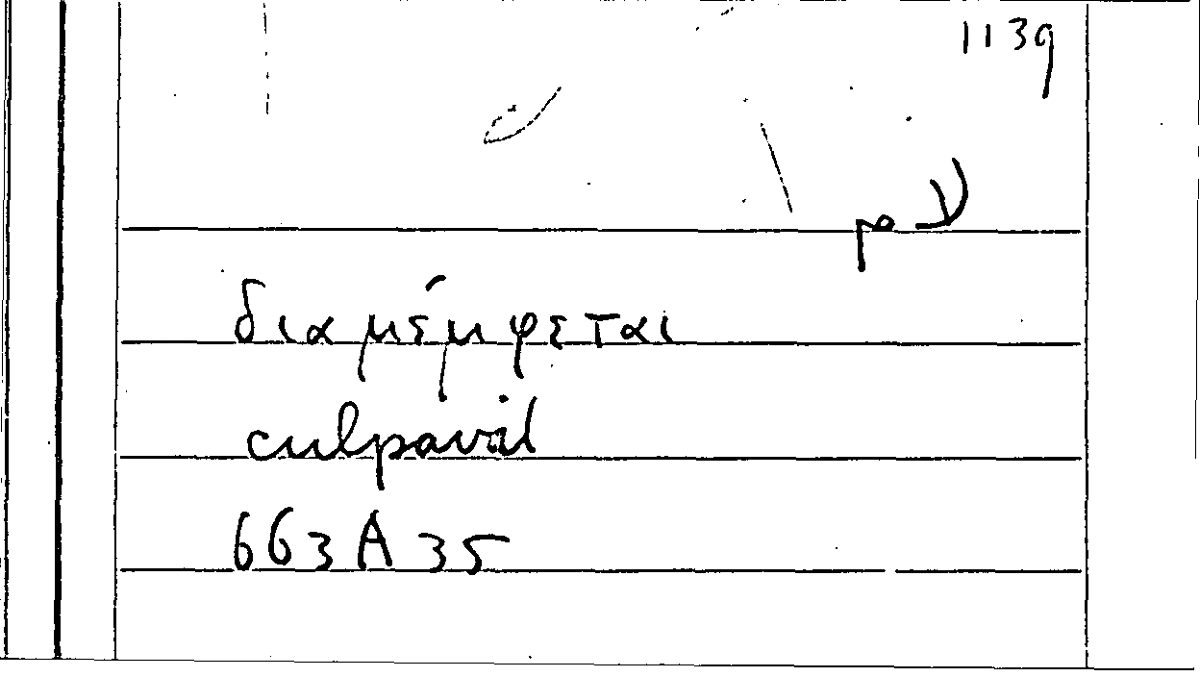 1139
διαμέμφεται
culpavit
663A35